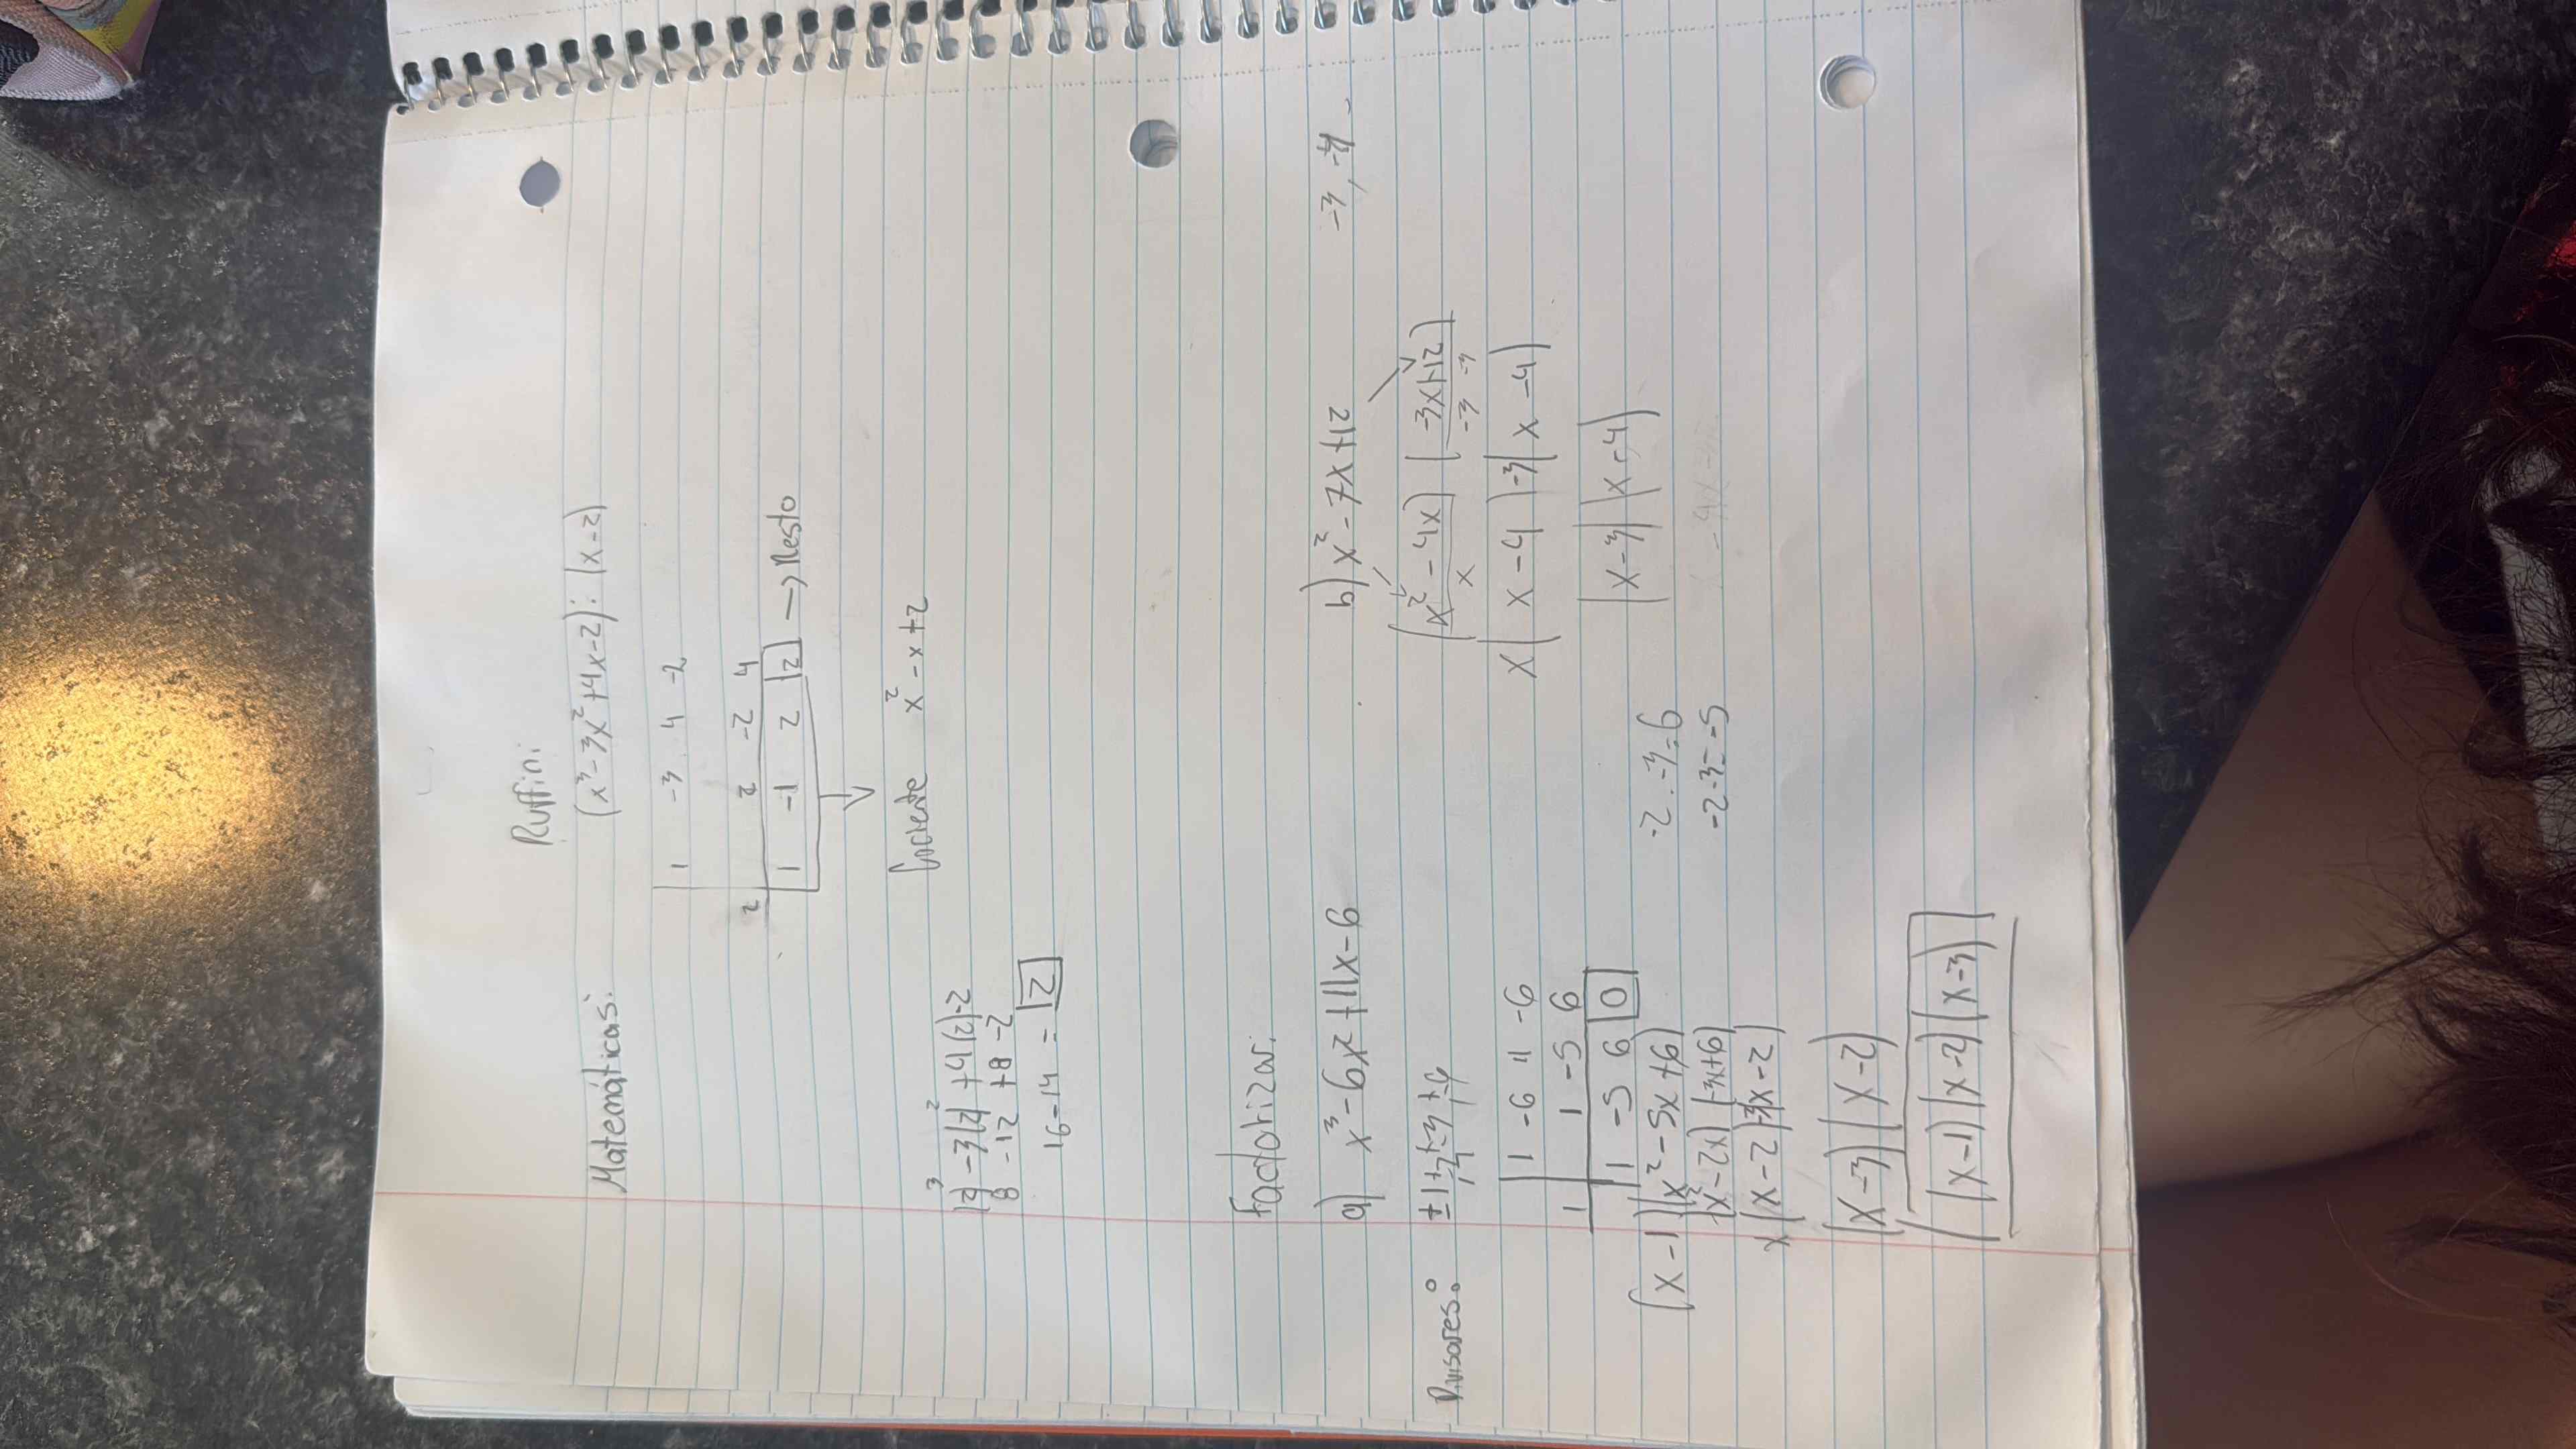 Ruffini:
Matemáticas: (x³-3x²+4x-2):(x-2)
1 -3 4 -2
2 2 -2 4
1 -1 2 2 → Resto
Cociente x²-x+2
(2)³-3(2)²+4(2)-2
8 -12 +8 -2
16-14 = 2
Factorizar:
a) x³-6x²+11x-6
Divisores: ±1 ±2 ±3 ±6
1 -6 11 -6
1 1 -5 6
1 -5 6 0
(x-1)(x²-5x+6)
(x²-2x)(-3x+6)
x(x-2)-3(x-2)
(x-3)(x-2)
(x-1)(x-2)(x-3)
-2·-3=6
-2-3=-5
b) x²-7x+12 -3,-4
(x²-4x)(-3x+12)
x -3 -3
x(x-4)-3(x-4)
(x-3)(x-4)